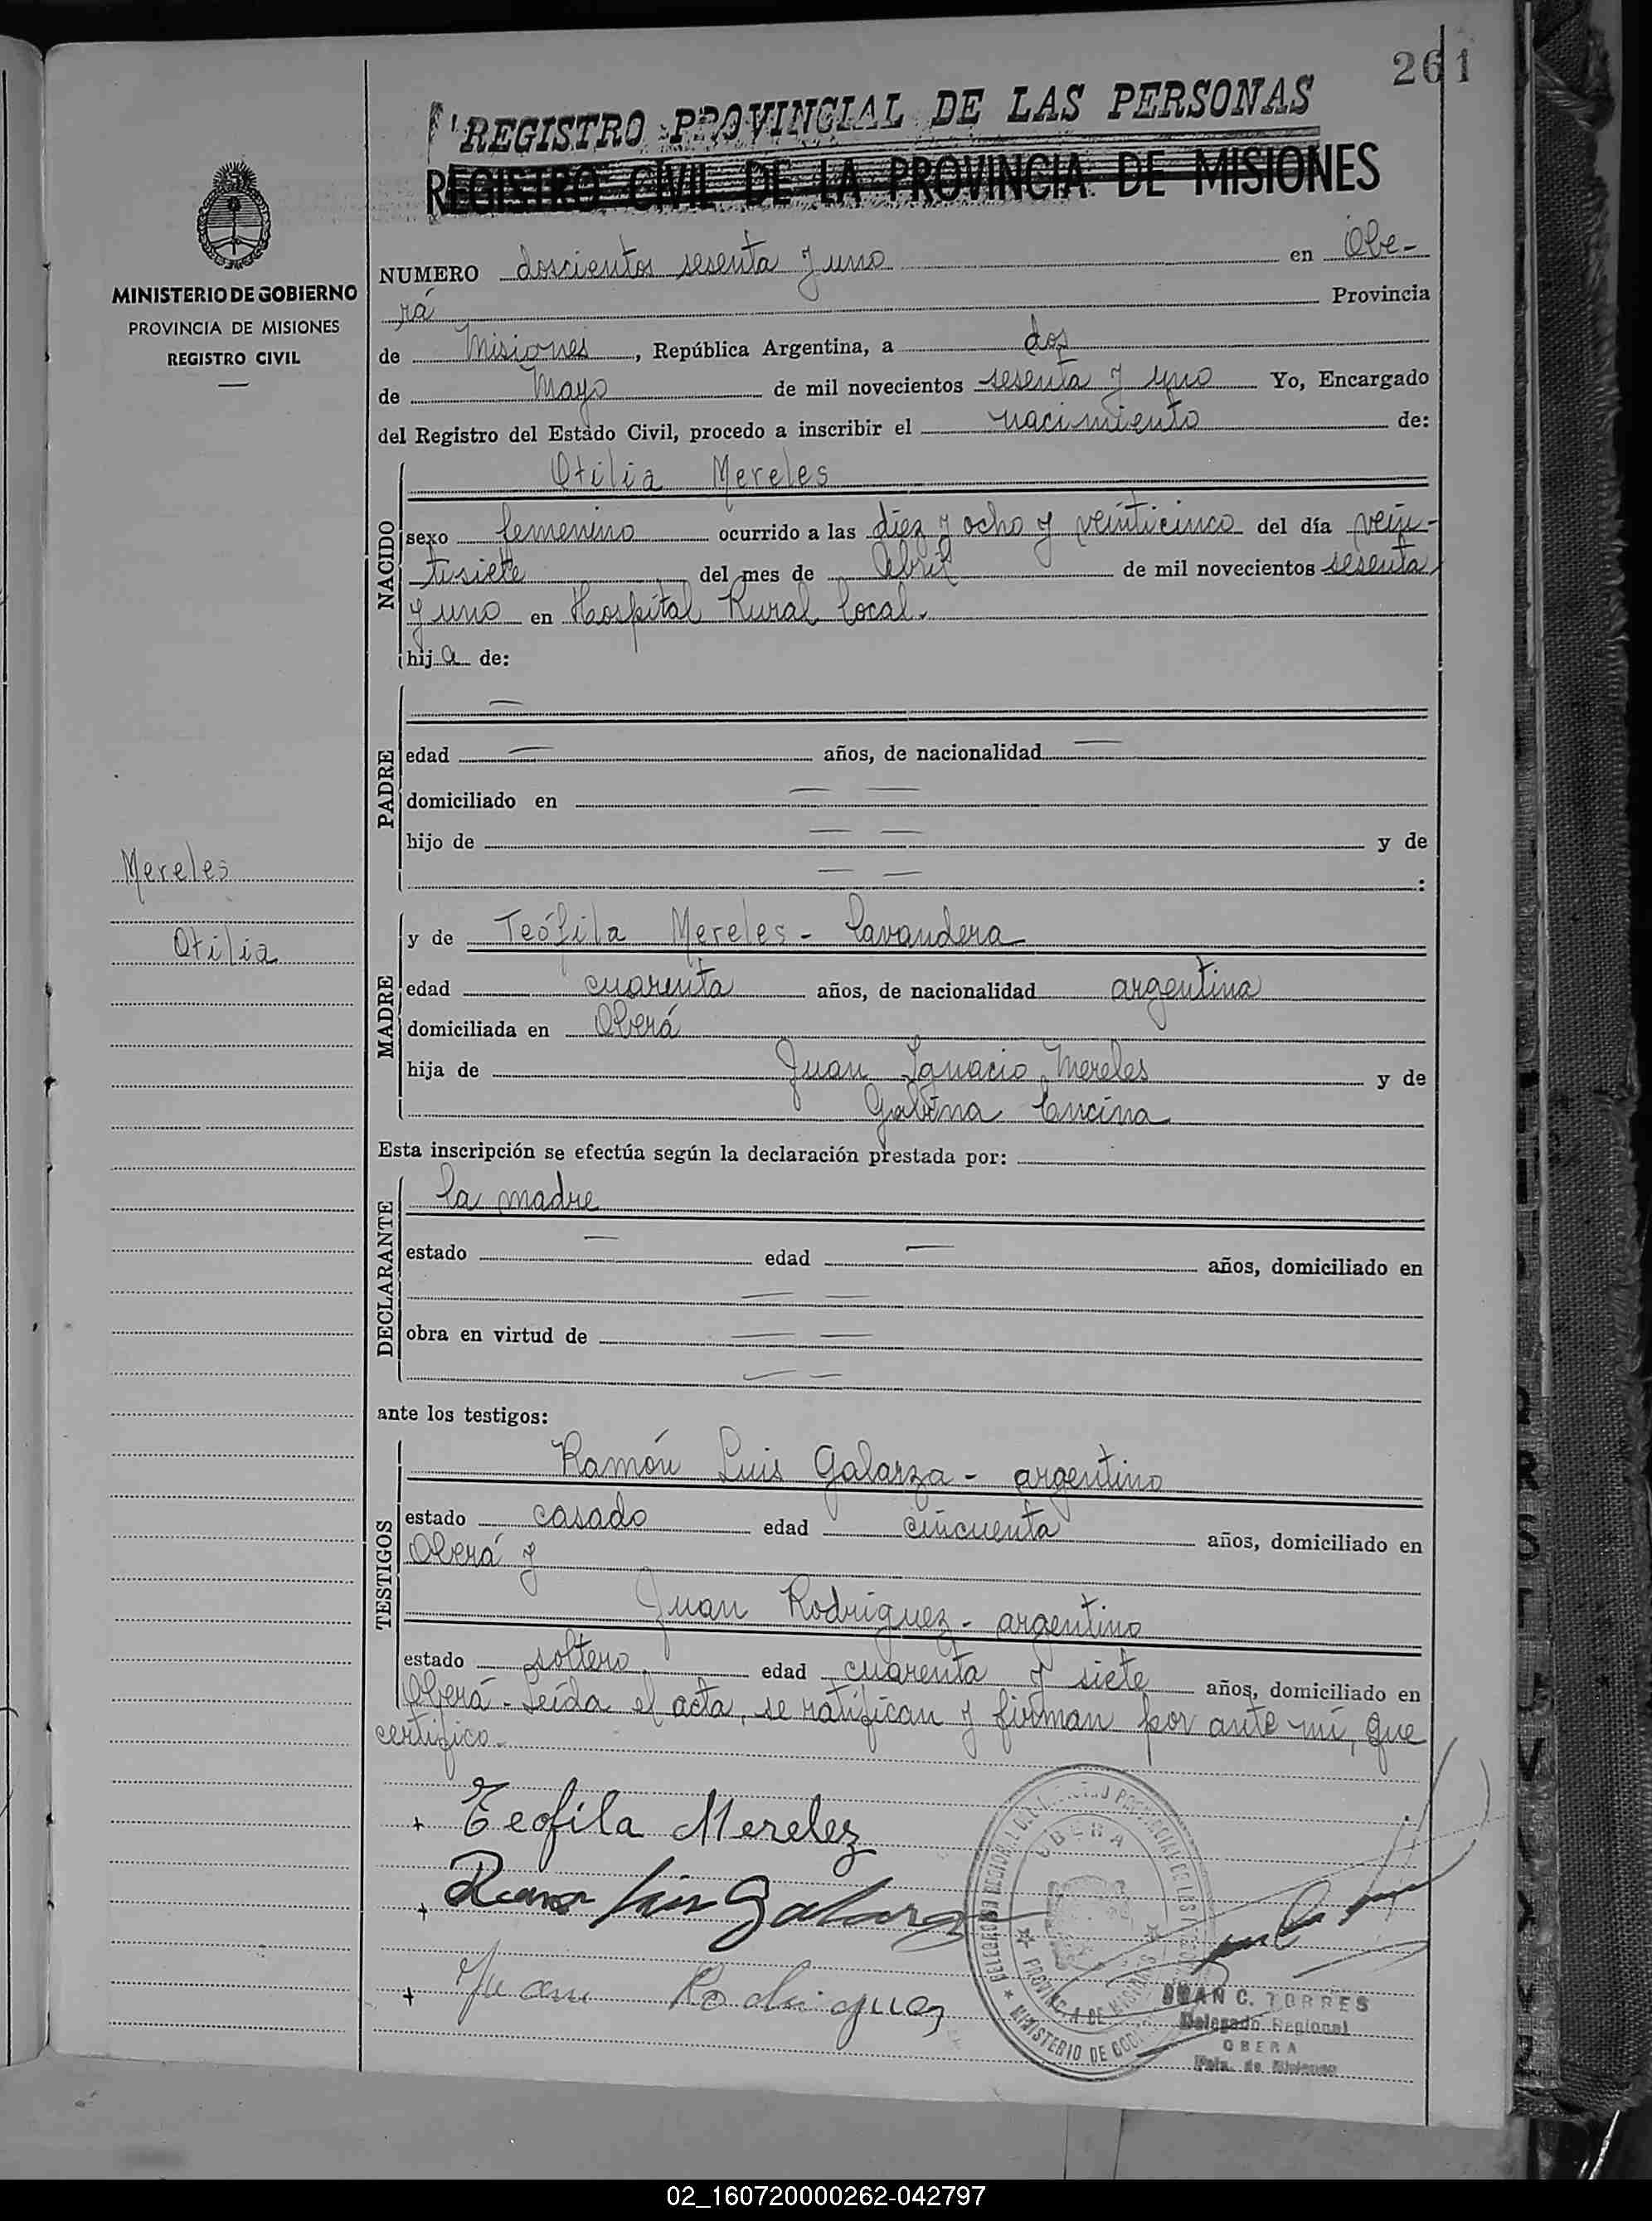 261
REGISTRO PROVINCIAL DE LAS PERSONAS
REGISTRO CIVIL DE LA PROVINCIA DE MISIONES
MINISTERIO DE GOBIERNO
PROVINCIA DE MISIONES
REGISTRO CIVIL
NUMERO doscientos sesenta y uno en Obe-
rá Provincia
de Misiones, República Argentina, a dos
de Mayo de mil novecientos sesenta y uno Yo, Encargado
del Registro del Estado Civil, procedo a inscribir el nacimiento de:
NACIDO
Otilia Mereles
sexo femenino ocurrido a las diez y ocho y veinticinco del día vein-
tisiete del mes de Abril de mil novecientos sesenta
y uno en Hospital Rural local.
hija de:
PADRE
—
edad — años, de nacionalidad —
domiciliado en — —
hijo de — — y de
— — :
Mereles
Otilia
MADRE
y de Teófila Mereles - Lavandera
edad cuarenta años, de nacionalidad argentina
domiciliada en Oberá
hija de Juan Ignacio Mereles y de
Gabina Encina
Esta inscripción se efectúa según la declaración prestada por:
DECLARANTE
la madre
estado — edad — años, domiciliado en
— —
obra en virtud de — —
— —
ante los testigos:
TESTIGOS
Ramón Luis Galarza - argentino
estado casado edad cincuenta años, domiciliado en
Oberá y
Juan Rodriguez - argentino
estado soltero edad cuarenta y siete años, domiciliado en
Oberá - Leída el acta, se ratifican y firman por ante mí, que
certifico.-
+ Teofila Merelez
+ Ramon Luis Galarza
+ Juan Rodriguez
OBERA
PROVINCIA DE MISIONES
MINISTERIO DE
JUAN C. TORRES
Delegado Regional
OBERA
Pcia. de Misiones
02_160720000262-042797